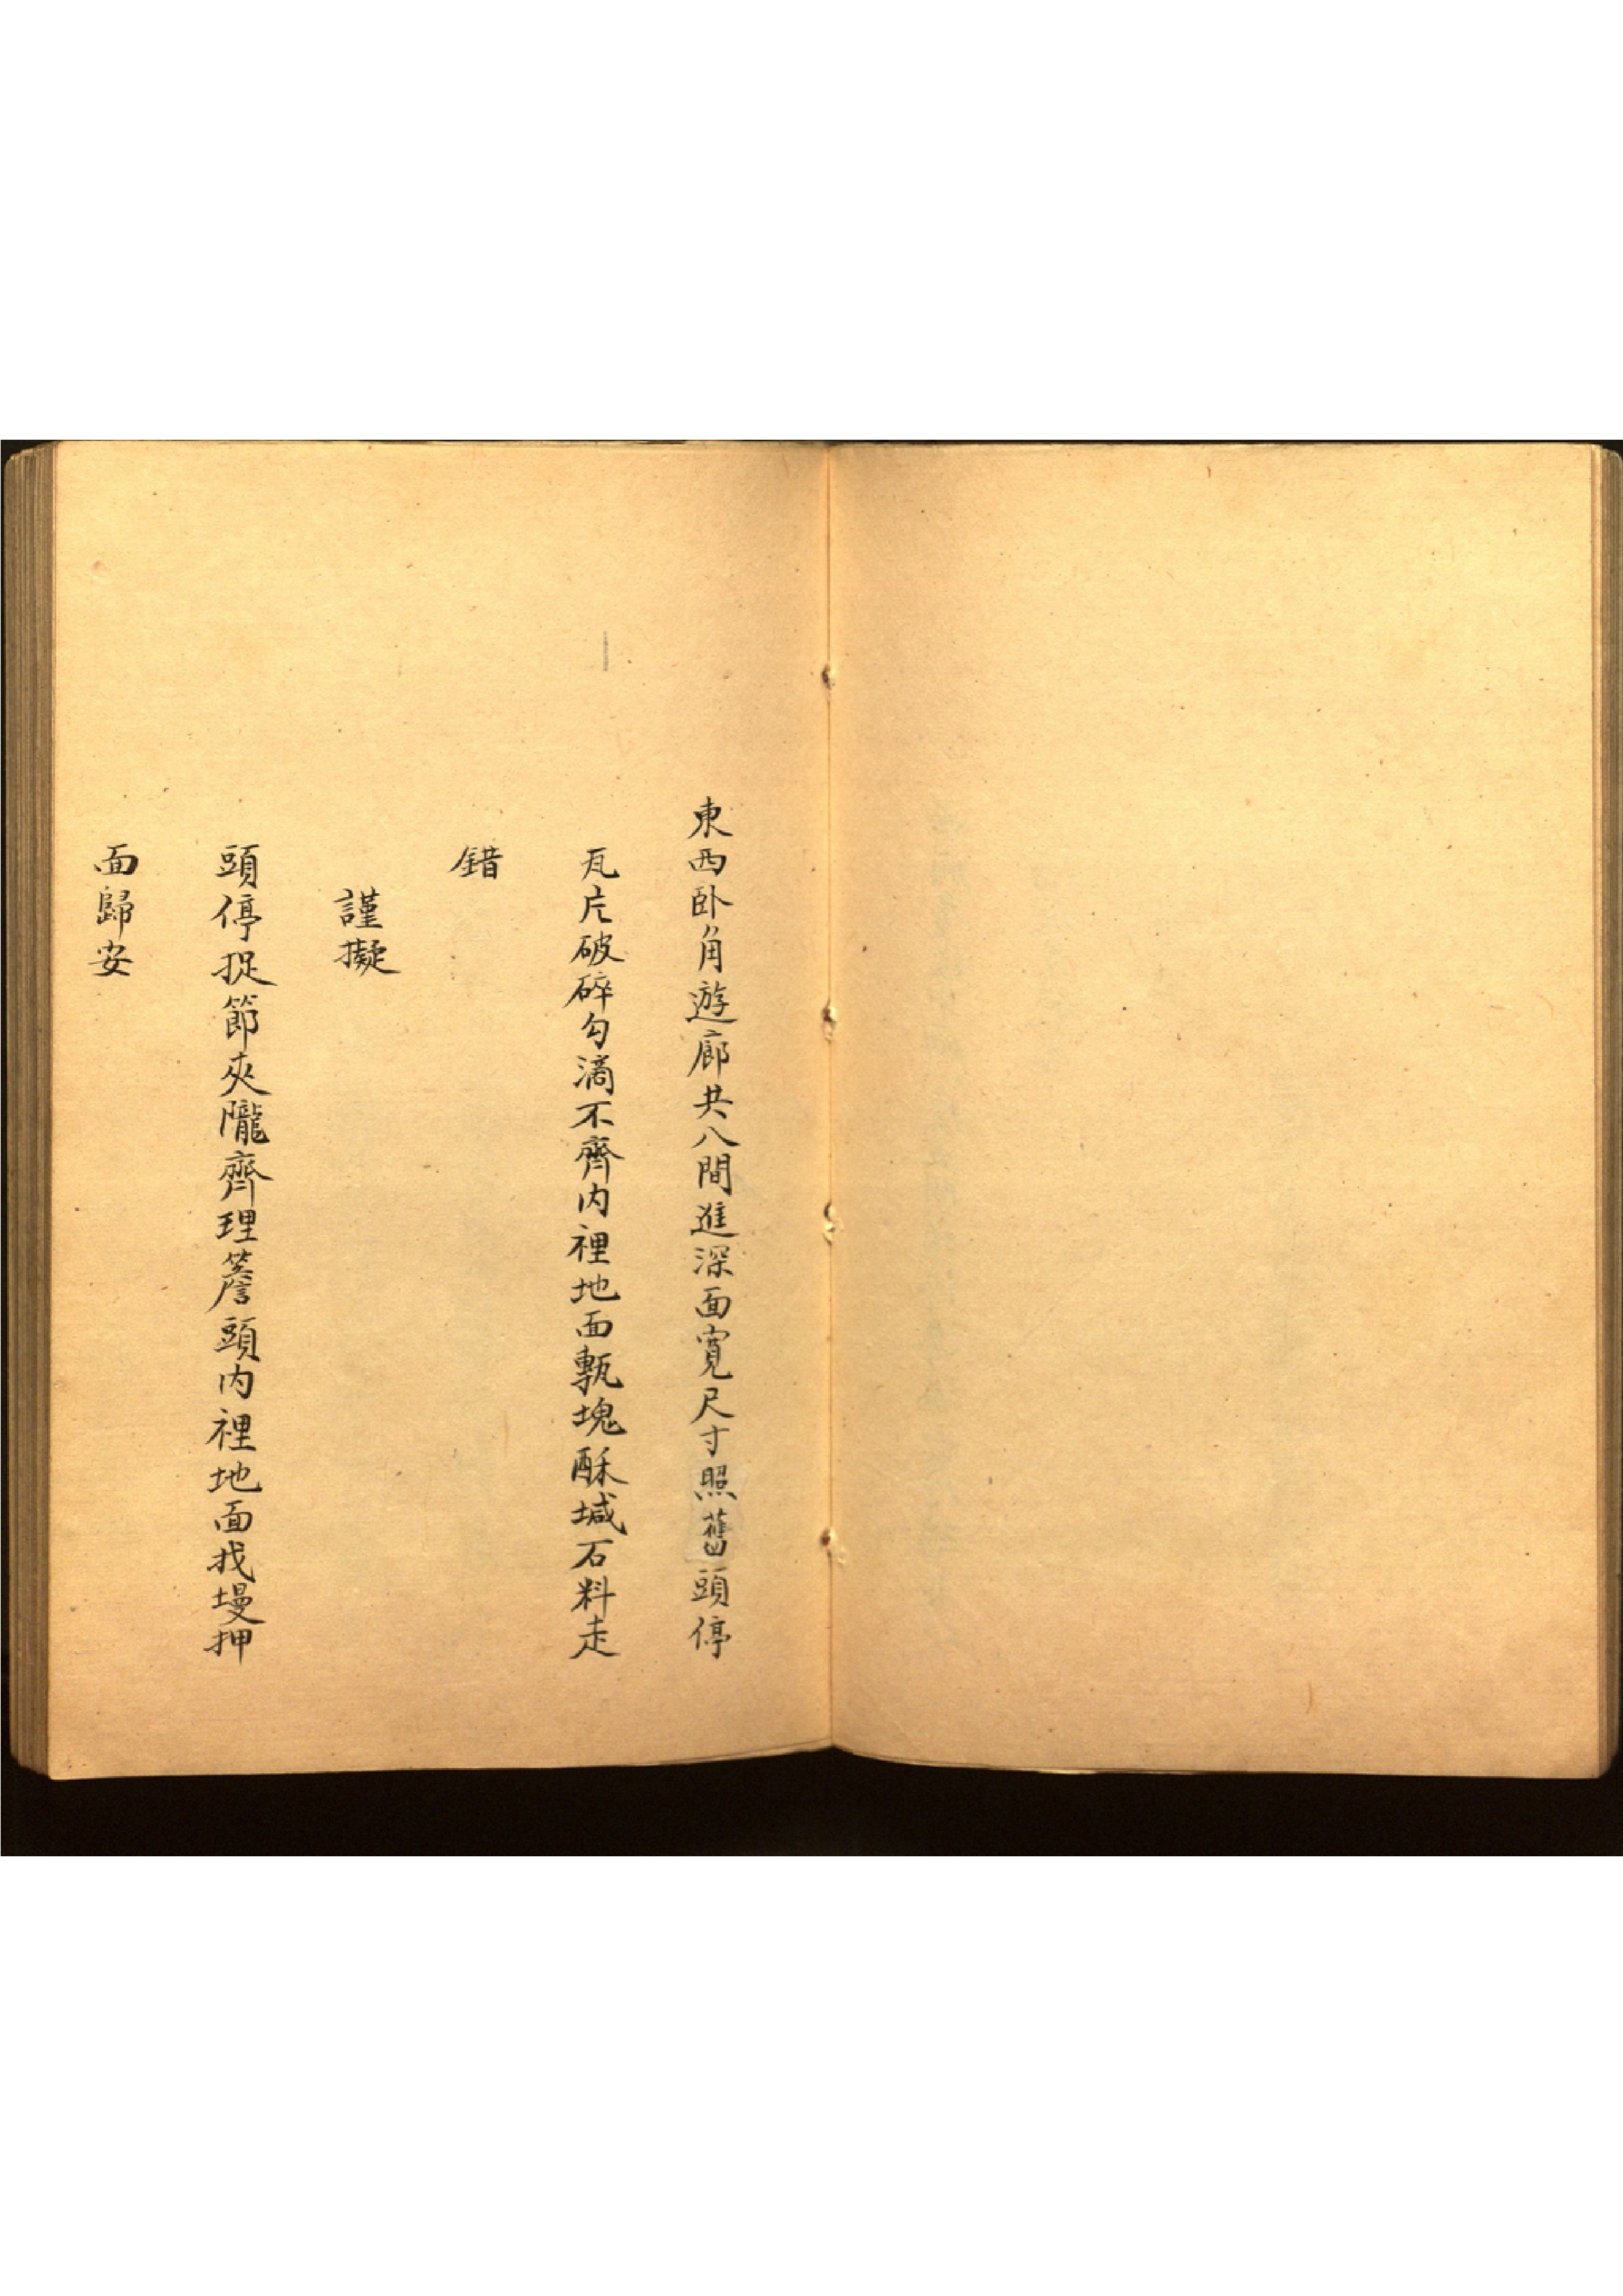 東西卧角遊廊共八間進深面寬尺寸照舊頭停
瓦片破碎勾滴不齊内裡地面甎塊酥堿石料走
錯
謹擬
頭停捉節夾隴齊理簷頭内裡地面找墁押
面歸安